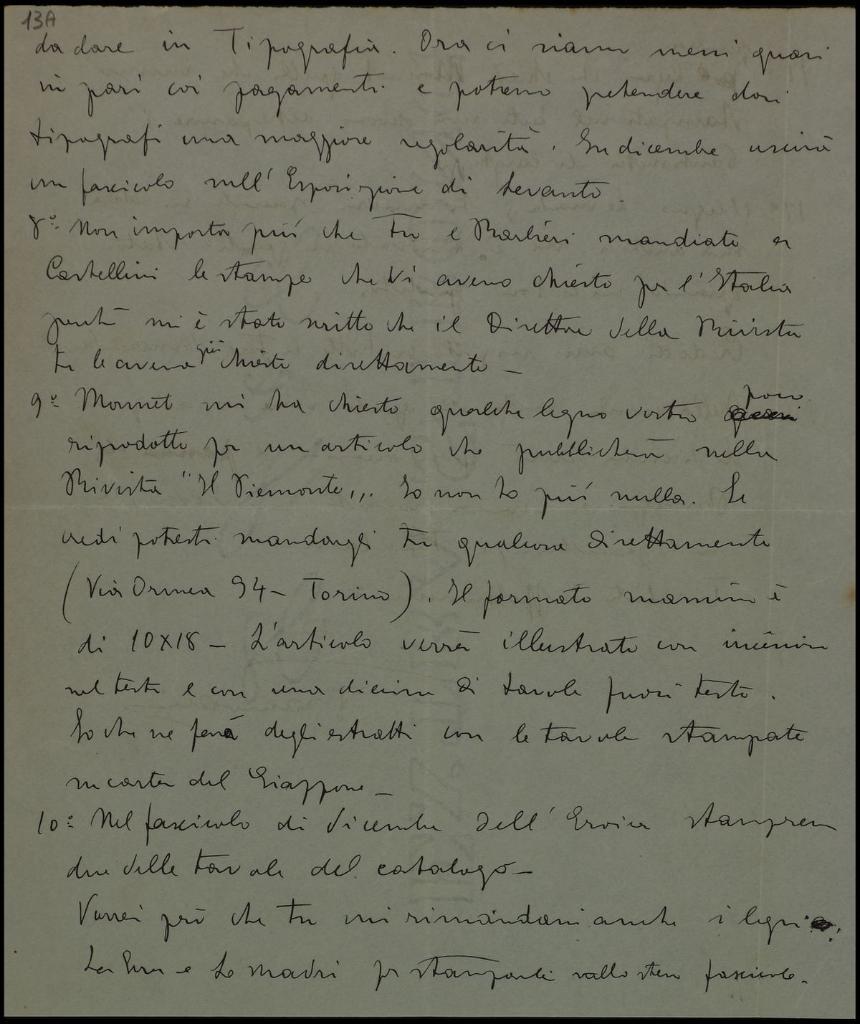 13A
da dare in Tipografia. Ora ci siamo messi quasi
in pari coi pagamenti e potremo pretendere dai
tipografi una maggiore regolarità. In dicembre uscirà
un fascicolo sull'Esposizione di Levanto.
8º Non importa più che Tu e Barbieri mandiate a
Castellini le stampe che Vi avevo chiesto per l'Italia
perché mi è stato scritto che il Direttore della Rivista
Te le aveva già chieste direttamente —
9º Monnet mi ha chiesto qualche legno vostro poco
riprodotto per un articolo che pubblicherà nella
Rivista "Il Piemonte,,. Io non ho più nulla. Se
credi potresti mandargli Tu qualcosa direttamente
(Via Ormea 94 - Torino). Il formato massimo è
di 10x18 - L'articolo verrà illustrato con incisioni
nel testo e con una diecina di tavole fuori testo.
So che ne farà degli estratti con le tavole stampate
su carta del Giappone —
10º Nel fascicolo di Dicembre dell'Eroica stamperemo
due delle tavole del catalogo —
Vorrei però che tu mi rimandassi anche i legni:
e Le madri per stamparli nello stesso fascicolo.